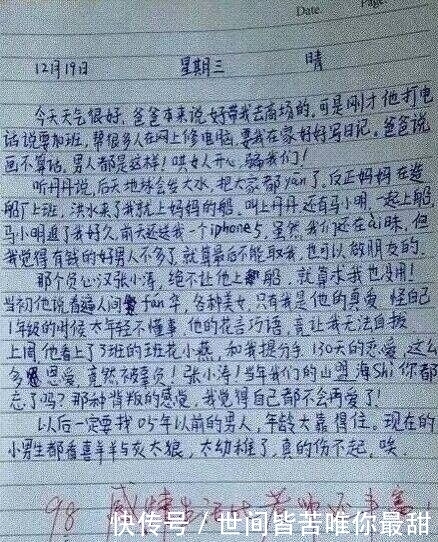 Date. Page.
12月19日 星期三 晴
今天天气很好，爸爸本来说好带我去商场的，可是刚才他打电
话说要加班，帮很多人在网上修电脑，要我在家好好写日记。爸爸说
画不算话，男人都是这样！哄女人开心，骗我们！
听丹丹说，后天地球会发大水，把大家都yān了。反正妈妈在造
船厂上班，洪水来了我就上妈妈的船。叫上丹丹还有马小明一起上船，
马小明追了我好久，前天还送我一个iphone5，虽然我们还在ai昧，但
我觉得有钱的好男人不多了，就算最后不能取我，也可以做朋友的。
那个负心汉张小涛，绝不让他上船，就算求我也没用！
当初他说看遍人间fan华，各种美女，只有我是他的真爱，怪自己
1年级的时候太年轻不懂事，他的花言巧语，竟让我无法自拔
上周他看上了3班的班花小燕，和我提分手，130天的恋爱，这么
多恩爱，竟然被辜负！张小涛！当年我们的山盟海Shi你都
忘了吗？那种背叛的感觉，我觉得自己都不会再爱了！
以后一定要找05年以前的男人，年龄大靠得住。现在的
小男生都看喜羊羊与灰太狼，太幼稚了，真的伤不起，唉
98 感情生活比老师还丰富！
快传号／世间皆苦唯你最甜